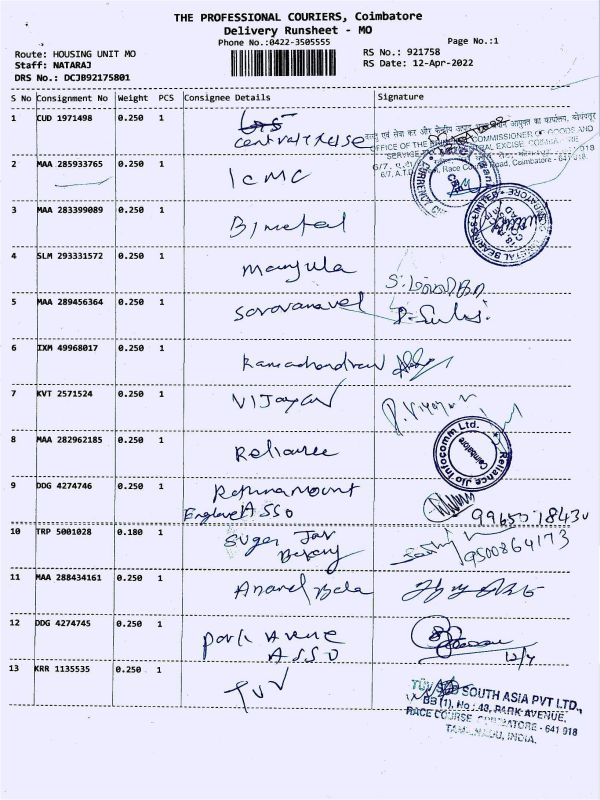 THE PROFESSIONAL COURIERS, Coimbatore
Delivery Runsheet - MO
Phone No.:0422-3505555
Page No.:1
Route: HOUSING UNIT MO
RS No.: 921758
Staff: NATARAJ
RS Date: 12-Apr-2022
DRS No.: DCJB92175801
S No Consignment No Weight PCS Consignee Details Signature
1 CUD 1971498 0.250 1
OFFICE OF THE COMMISSIONER OF GOODS AND
SERVICE
EXCISE
Race Course Road, Coimbatore - 641 018.
2 MAA 285933765 0.250 1 ICMC
3 MAA 283399089 0.250 1 Bimetal
BEARINGS LIMITED
4 SLM 293331572 0.250 1 Manjula
5 MAA 289456364 0.250 1 Saravanavel
6 IXM 49968017 0.250 1 Ramachandran
7 KVT 2571524 0.250 1 Vijayan P. Vijayan
8 MAA 282962185 0.250 1 Reliance
Reliance Jio Infocomm Ltd.
Coimbatore
9 DDG 4274746 0.250 1
ASSO
10 TRP 5001028 0.180 1 Suger Jar
Bakery
9500864173
11 MAA 288434161 0.250 1 Anand Bala
12 DDG 4274745 0.250 1 Park Avenue
ASSO
12/4
13 KRR 1135535 0.250 1 TUV
TÜV SÜD SOUTH ASIA PVT LTD.,
BB (1), No : 43, PARK AVENUE,
RACE COURSE, COIMBATORE - 641 018
TAMILNADU, INDIA.